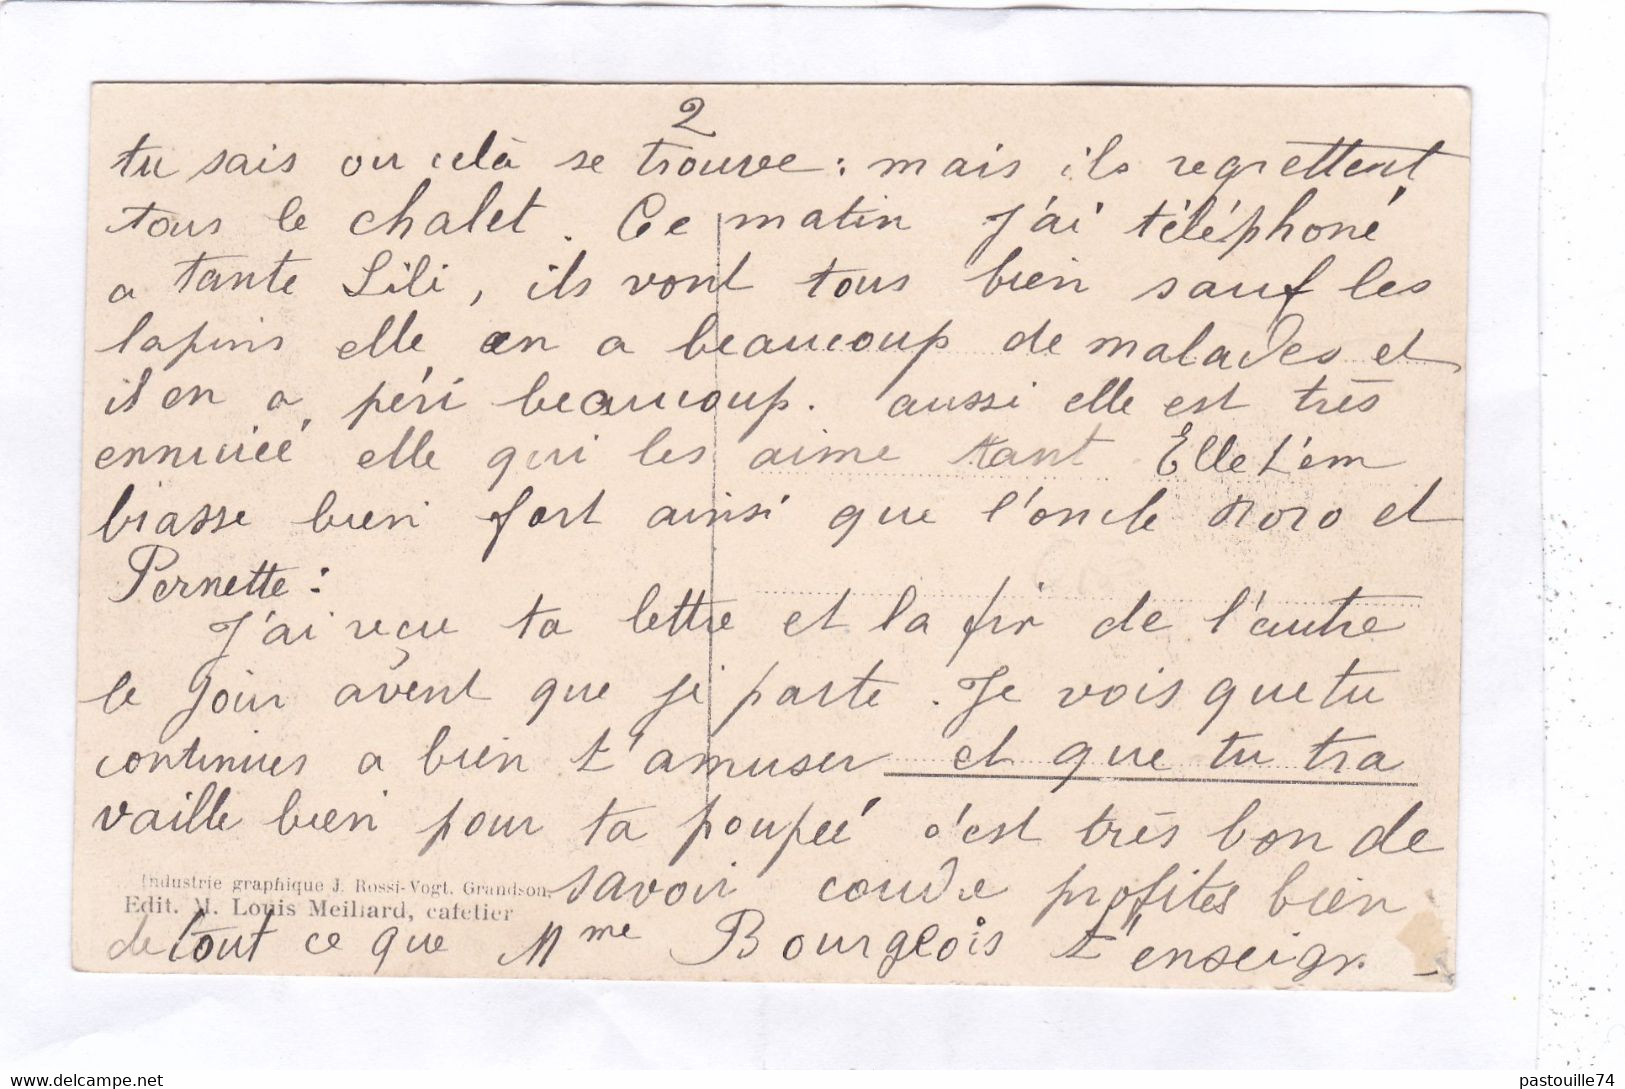 2
tu sais ou celà se trouve : mais ils regrettent
tous le chalet. Ce matin J'ai téléphoné
a tante Lili, ils vont tous bien sauf les
lapins elle en a beaucoup de malades et
il en a péri beaucoup. aussi elle est très
ennuiéé elle qui les aime tant Elle t'em
brasse bien fort ainsi que l'oncle Roro et
Pernette :
J'ai reçu ta lettre et la fin de l'autre
le Join avent que je parte. Je vois que tu
continues a bien t'amuser et que tu tra
vaille bien pour ta poupéé c'est très bon de
savoir coudre profites bien
de tout ce que Mme Bourgeois t'enseigr. -
Industrie graphique J. Rossi-Vogt. Grandson.
Edit. M. Louis Meilhard, cafetier
www.delcampe.net
pastouille74